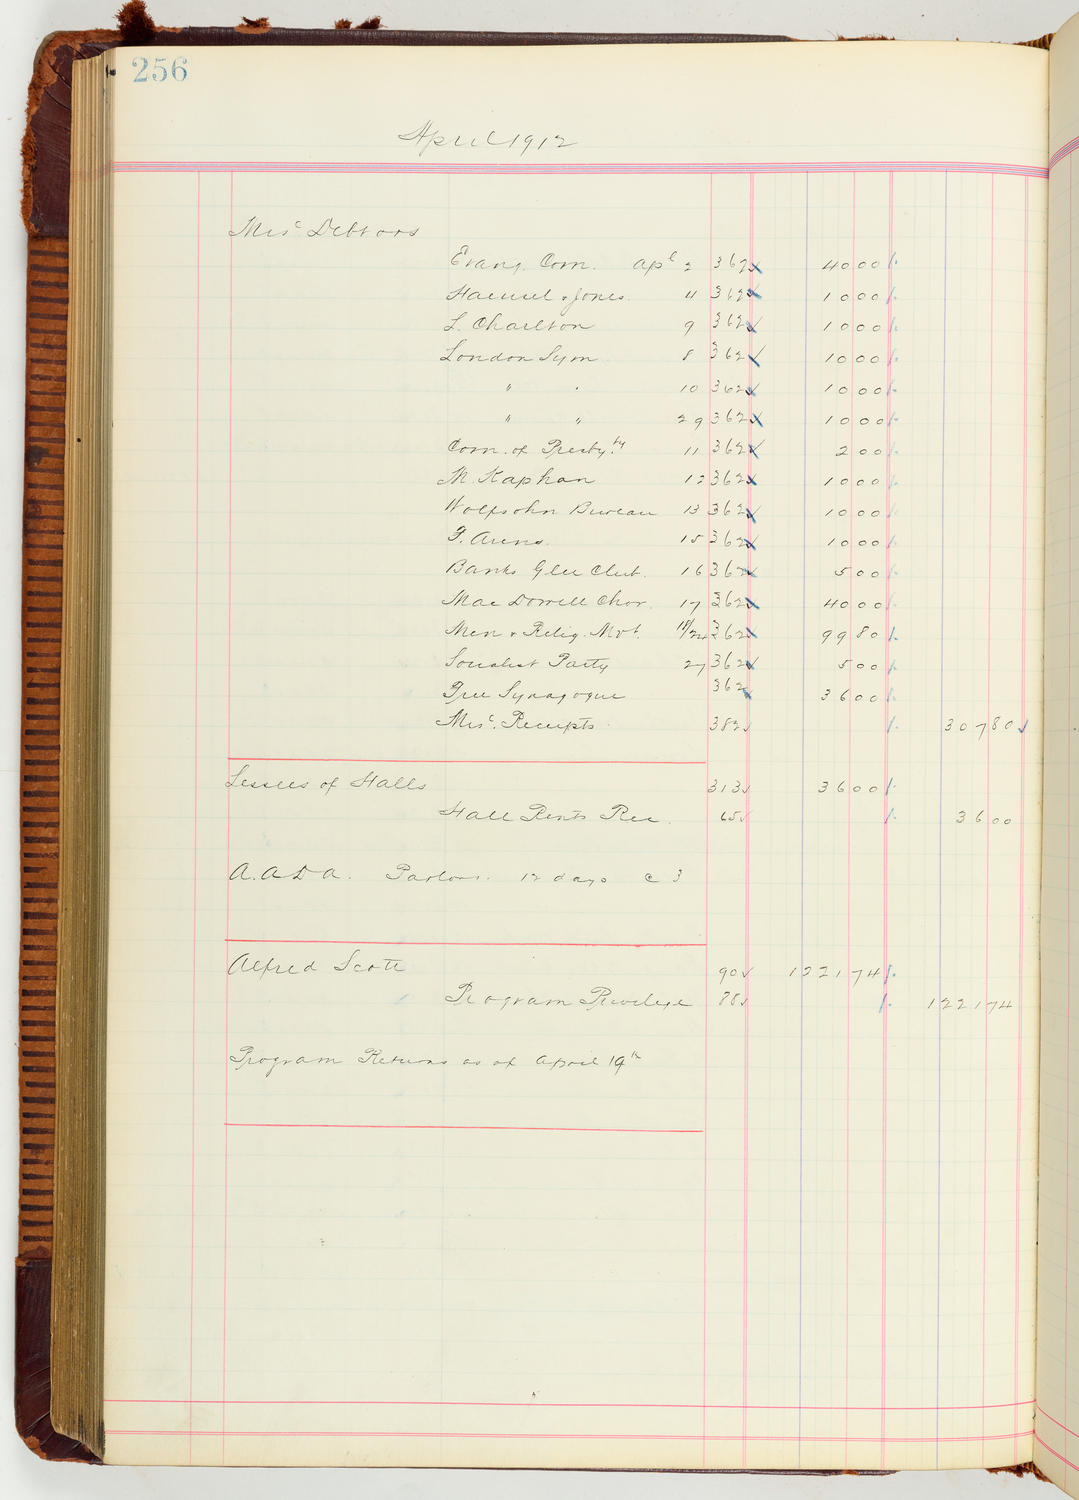 256
April 1912
Misc Debtors
Evang. Com. Apl 2 362 40 00
Haensel & Jones. 4 362 10 00
L. Charlton 9 362 10 00
London Sym 8 362 10 00
" " 10 362 10 00
" " 29 362 10 00
Com. of Presby.ty 11 362 2 00
M. Kaphan 12 362 10 00
Wolfsohn Bureau 13 362 10 00
F. Arens. 15 362 10 00
Banks Glee Club. 16 362 5 00
Mac Dowell Chor. 17 362 40 00
Men & Relig. Mvt. 18/24 362 99 80
Socialist Party 27 362 5 00
Free Synagogue 362 36 00
Misc. Receipts 382 307 80
Lessees of Halls 313 36 00
Hall Rents Rec. 65 36 00
A.A.D.A. Parlors. 12 days @ 3
Alfred Scott 90 1221 74
Program Privilege 88 1221 74
Program Returns as of April 19th